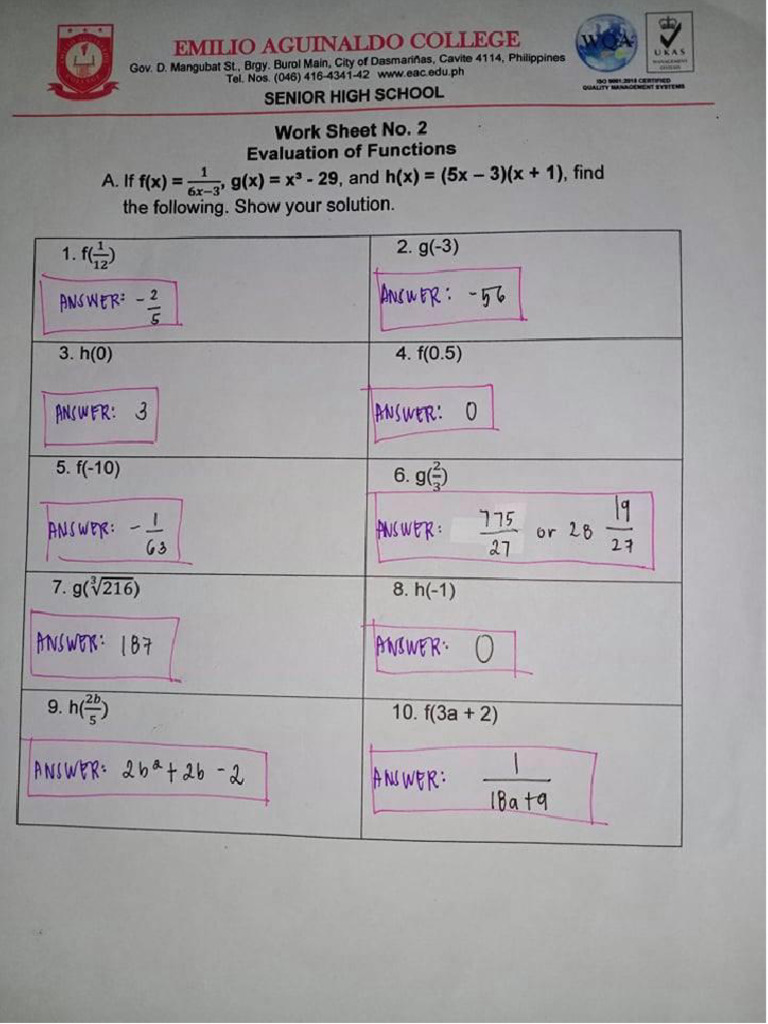 EMILIO AGUINALDO COLLEGE
Gov. D. Mangubat St., Brgy. Burol Main, City of Dasmariñas, Cavite 4114, Philippines
Tel. Nos. (046) 416-4341-42 www.eac.edu.ph
SENIOR HIGH SCHOOL
WQA
UKAS
MANAGEMENT
SYSTEMS
ISO 9001:2015 CERTIFIED
QUALITY MANAGEMENT SYSTEMS
Work Sheet No. 2
Evaluation of Functions
A. If f(x) = 1/(6x–3), g(x) = x³ - 29, and h(x) = (5x – 3)(x + 1), find
the following. Show your solution.
1. f(1/12)
ANSWER: - 2/5
2. g(-3)
ANSWER: -56
3. h(0)
ANSWER: 3
4. f(0.5)
ANSWER: 0
5. f(-10)
ANSWER: - 1/63
6. g(2/3)
ANSWER: 775/27 or 28 19/27
7. g(∛216)
ANSWER: 187
8. h(-1)
ANSWER: 0
9. h(2b/5)
ANSWER: 2b² + 2b - 2
10. f(3a + 2)
ANSWER: 1/(18a+9)